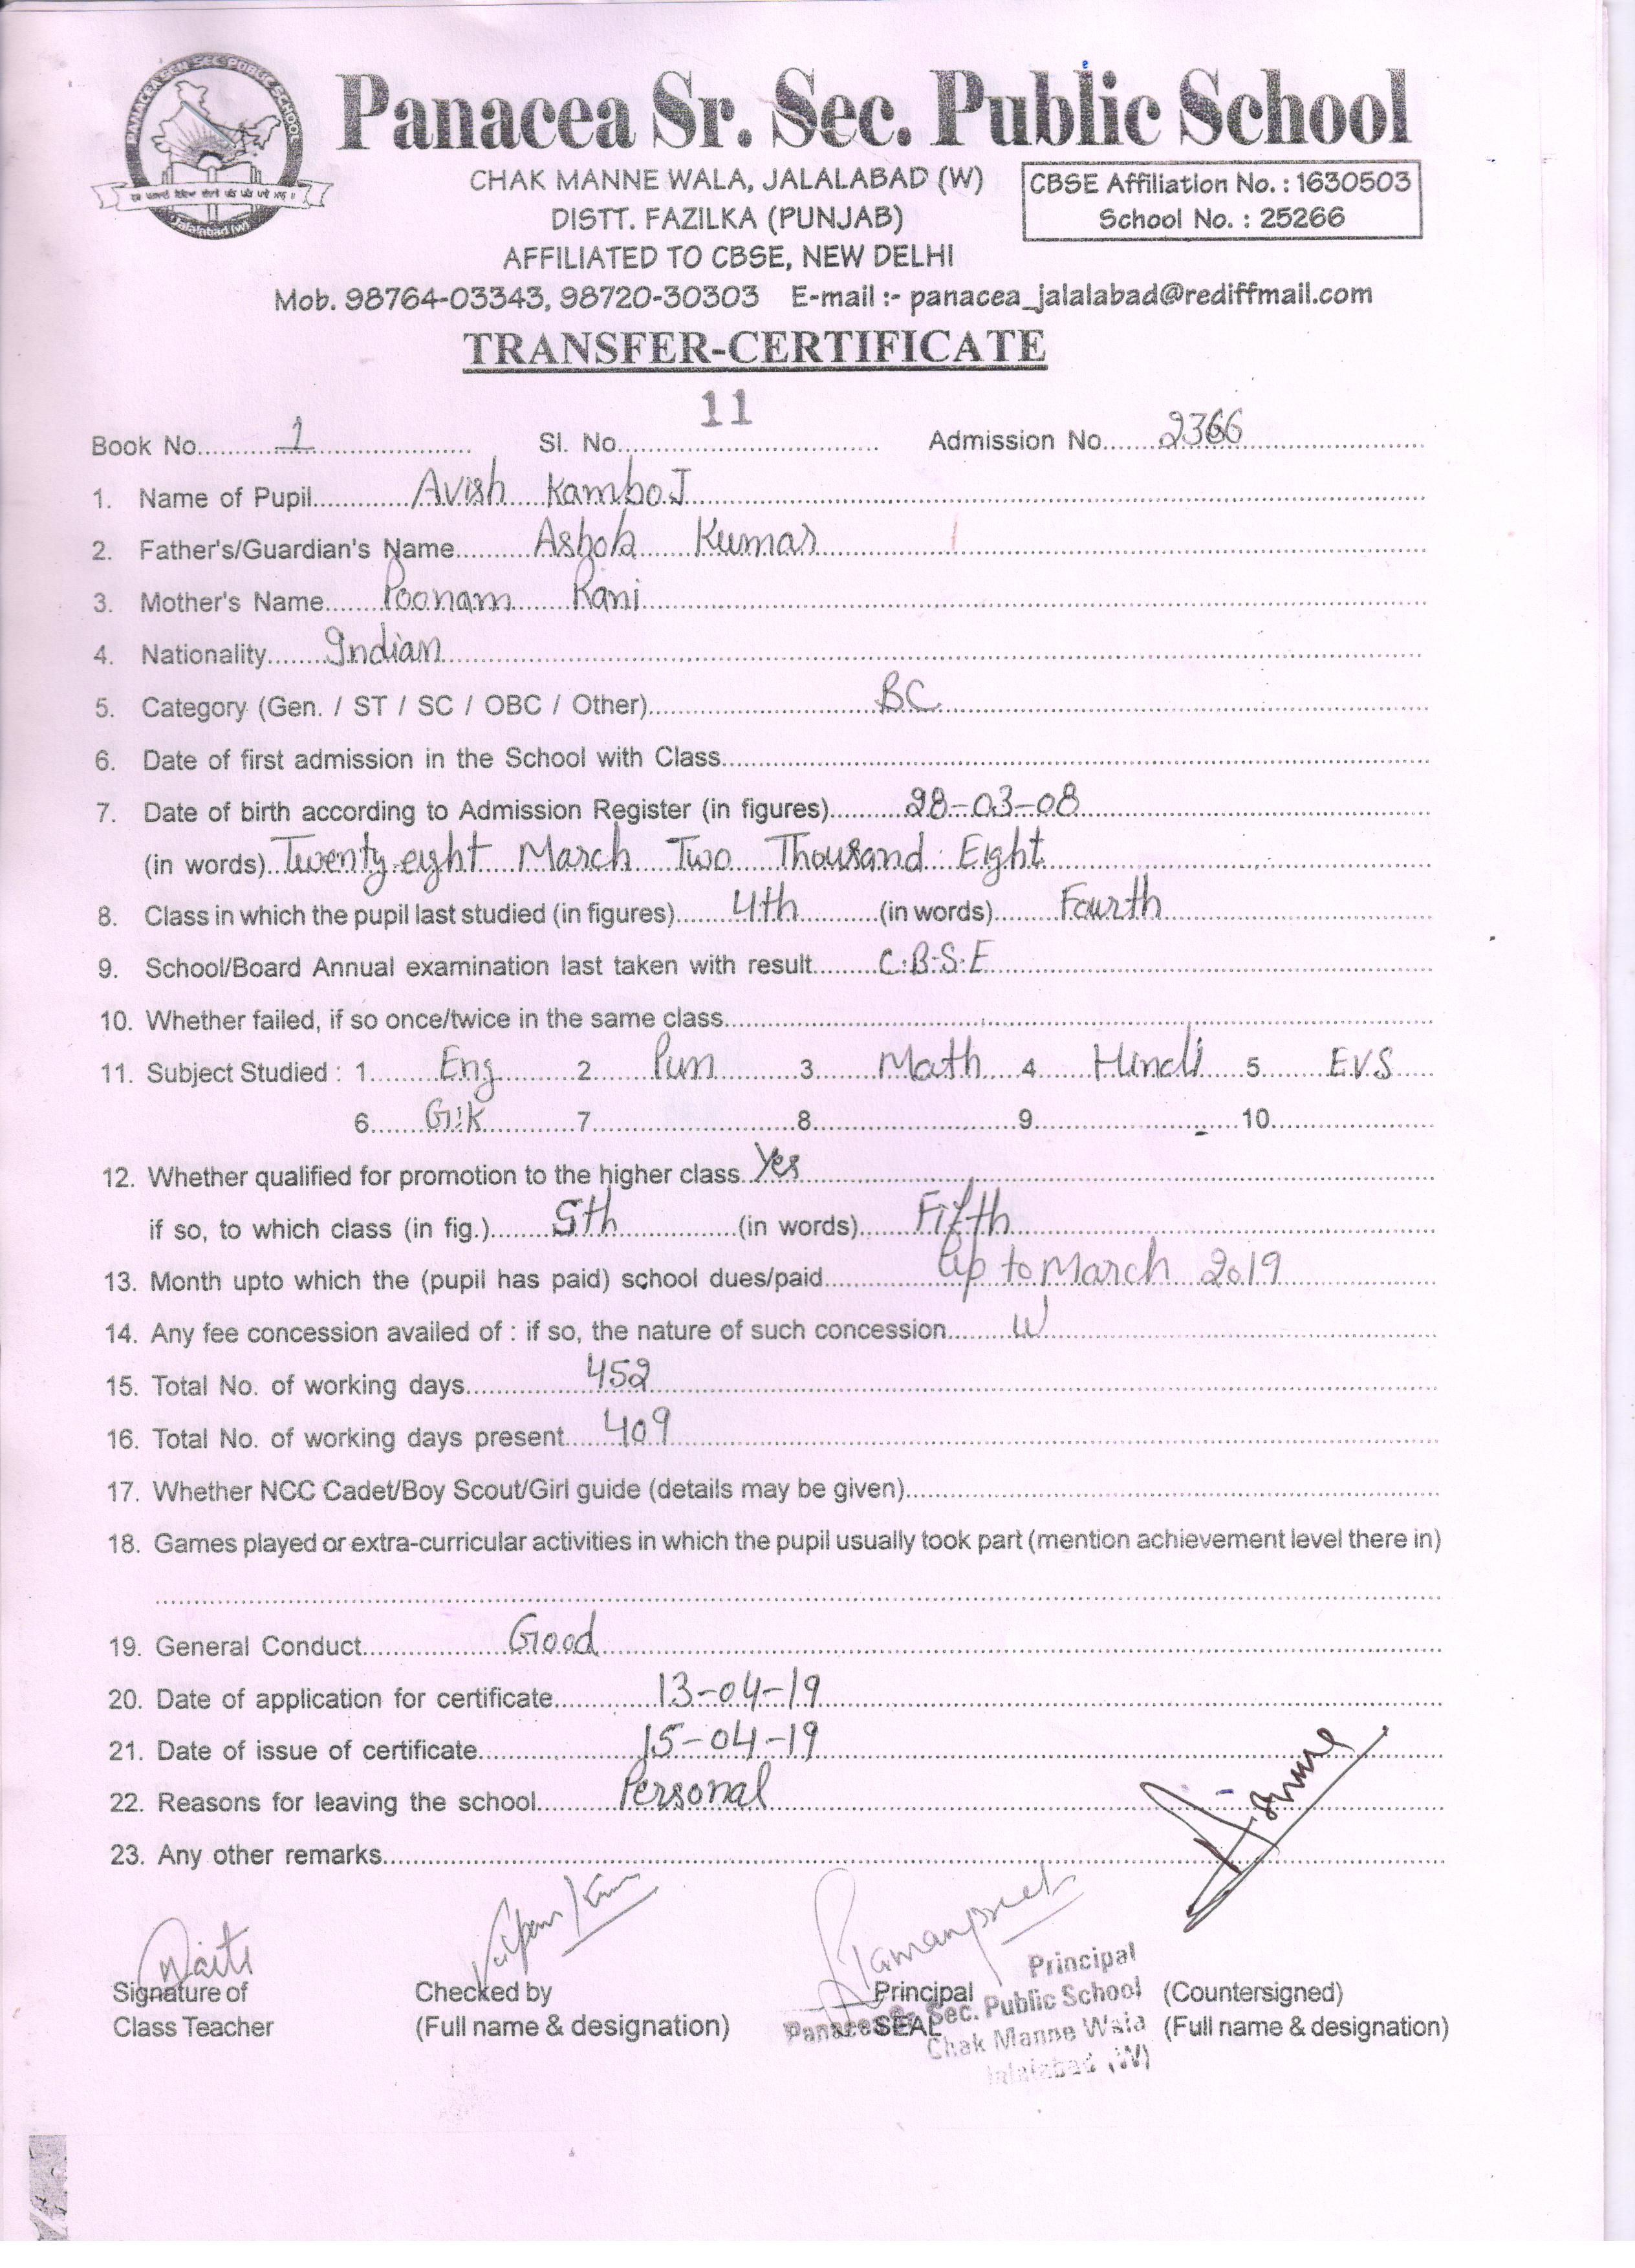 PANACEA SEN SEC PUBLIC SCHOOL
Jalalabad (w)
Panacea Sr. Sec. Public School
CHAK MANNE WALA, JALALABAD (W)
DISTT. FAZILKA (PUNJAB)
AFFILIATED TO CBSE, NEW DELHI
CBSE Affiliation No. : 1630503
School No. : 25266
Mob. 98764-03343, 98720-30303 E-mail :- panacea_jalalabad@rediffmail.com
TRANSFER-CERTIFICATE
Book No. 1 Sl. No. 11 Admission No. 2366
1. Name of Pupil Avish Kamboj
2. Father's/Guardian's Name Ashok Kumar
3. Mother's Name Poonam Rani
4. Nationality Indian
5. Category (Gen. / ST / SC / OBC / Other) BC
6. Date of first admission in the School with Class
7. Date of birth according to Admission Register (in figures) 28-03-08
(in words) Twenty eight March Two Thousand Eight
8. Class in which the pupil last studied (in figures) 4th (in words) Fourth
9. School/Board Annual examination last taken with result C.B.S.E
10. Whether failed, if so once/twice in the same class
11. Subject Studied : 1 Eng 2 Pun 3 Math 4 Hindi 5 EVS
6 G.K 7 8 9 10
12. Whether qualified for promotion to the higher class Yes
if so, to which class (in fig.) 5th (in words) Fifth
13. Month upto which the (pupil has paid) school dues/paid Up to March 2019
14. Any fee concession availed of : if so, the nature of such concession
15. Total No. of working days 452
16. Total No. of working days present 409
17. Whether NCC Cadet/Boy Scout/Girl guide (details may be given)
18. Games played or extra-curricular activities in which the pupil usually took part (mention achievement level there in)
19. General Conduct Good
20. Date of application for certificate 13-04-19
21. Date of issue of certificate 15-04-19
22. Reasons for leaving the school Personal
23. Any other remarks
Ramanpreet
Signature of Checked by Principal (Countersigned)
Class Teacher (Full name & designation) SEAL (Full name & designation)
Principal
Panacea Sr. Sec. Public School
Chak Manne Wala
Jalalabad (W)